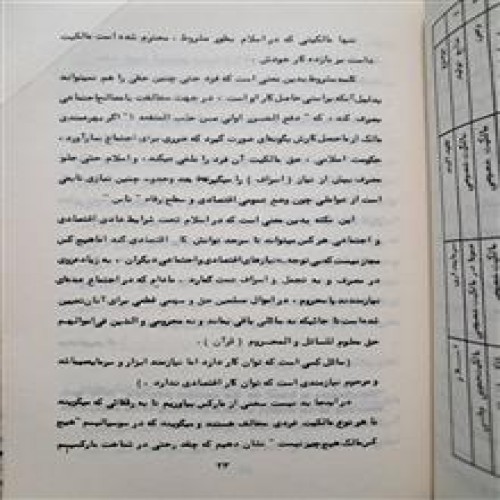 تنها مالکیتی که در اسلام بطور مشروط ، محترم شده است مالکیت
ماست بر بازده کار خودش .
کلمه مشروط بدین معنی است که فرد حتی چنین حقی را هم نمیتواند
بدلیل آنکه براستی حاصل کار او است ، در جهت مخالفت با مصالح اجتماعی
مصرف کند ، که " دفع الضرر اولی من جلب المنفعه "! اگر بهره‌مندی
مالک از ماحصل کارش بگونه‌ای صورت گیرد که ضرری برای اجتماع ببارآورد ،
حکومت اسلامی ، حق مالکیت آن فرد را ملغی میکند ، و اسلام حتی جلو
مصرف بیش از نیاز ( اسراف ) را میگیرد و حدود چنین نیازی تابعی
است از عواملی چون وضع عمومی اقتصادی و سطح رفاه " ناس "
این نکته بدین معنی است که در اسلام تحت شرایط عادی اقتصادی
و اجتماعی هر کس میتواند تا سرحد توانش کار اقتصادی کند اما هیچ کس
مجاز نیست که بی توجه به نیازهای اقتصادی و اجتماعی دیگران ، به زیاده‌روی
در مصرف و به تجمل و اسراف دست گمارد . مادام که در اجتماع عده‌ای
نیازمندند یا محروم ، در اموال مسلمین حق و سهمی قطعی برای آنان تعیین
شده است تا جائیکه نه سائلی باقی بماند و نه محرومی والذین فی اموالهم
حق معلوم للسائل و المحروم ( قرآن ) .
( سائل کسی است که توان کار دارد اما نیازمند ابزار و سرمایه میباشد
و محروم نیازمندی است که توان کار اقتصادی ندارد . )
در اینجا بد نیست سخنی از مارکس بیاوریم تا به رفقائی که میگویند
با هر نوع مالکیت فردی مخالف هستند و میگویند که در سوسیالیسم " هیچ
کس مالک هیچ چیز نیست " نشان دهیم که چقدر حتی در شناخت مارکسیسم
۲۳